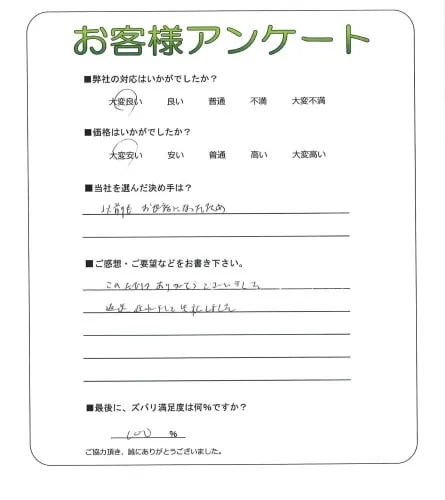 お客様アンケート
■弊社の対応はいかがでしたか？
大変良い 良い 普通 不満 大変不満
■価格はいかがでしたか？
大変安い 安い 普通 高い 大変高い
■当社を選んだ決め手は？
以前も お世話になったため
■ご感想・ご要望などをお書き下さい。
この度は ありがとうございました
しました
■最後に、ズバリ満足度は何%ですか？
100 %
ご協力頂き、誠にありがとうございました。